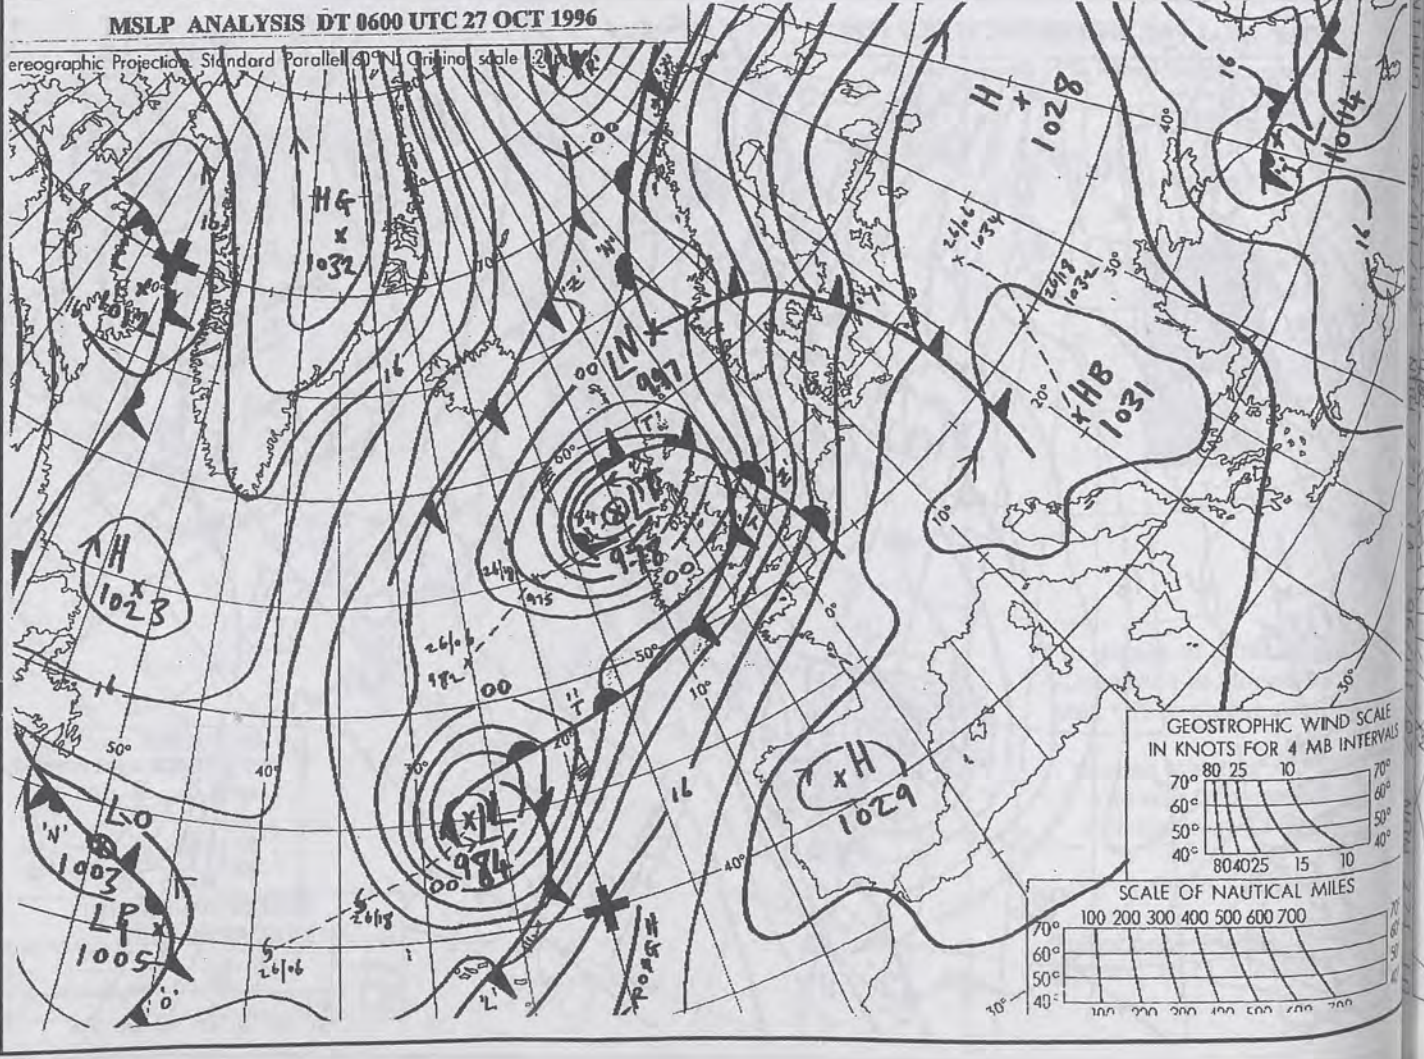 MSLP ANALYSIS DT 0600 UTC 27 OCT 1996
ereographic Projection Standard Parallel 60°N Original scale
H
1028
L
1014
16
40°
16
26/06
1034
26/18
1032
30°
HG
1032
70°
00
'N'
'Z'
16
LN
997
00
HB
1031
20°
60°
'T'
84
978
00
26/18
975
10°
H
1023
26/06
982
00
50°
10°
0°
16
50°
40°
'T'
20°
30°
L
984
00
16
H
1029
40°
30°
LO
'N'
1003
LP
1005
'O'
26/18
26/06
'L'
30°
GEOSTROPHIC WIND SCALE
IN KNOTS FOR 4 MB INTERVALS
80 25 10
70° 70°
60° 60°
50° 50°
40° 40°
80 40 25 15 10
SCALE OF NAUTICAL MILES
100 200 300 400 500 600 700
70°
60°
50°
40°
100 200 300 400 500 600 700